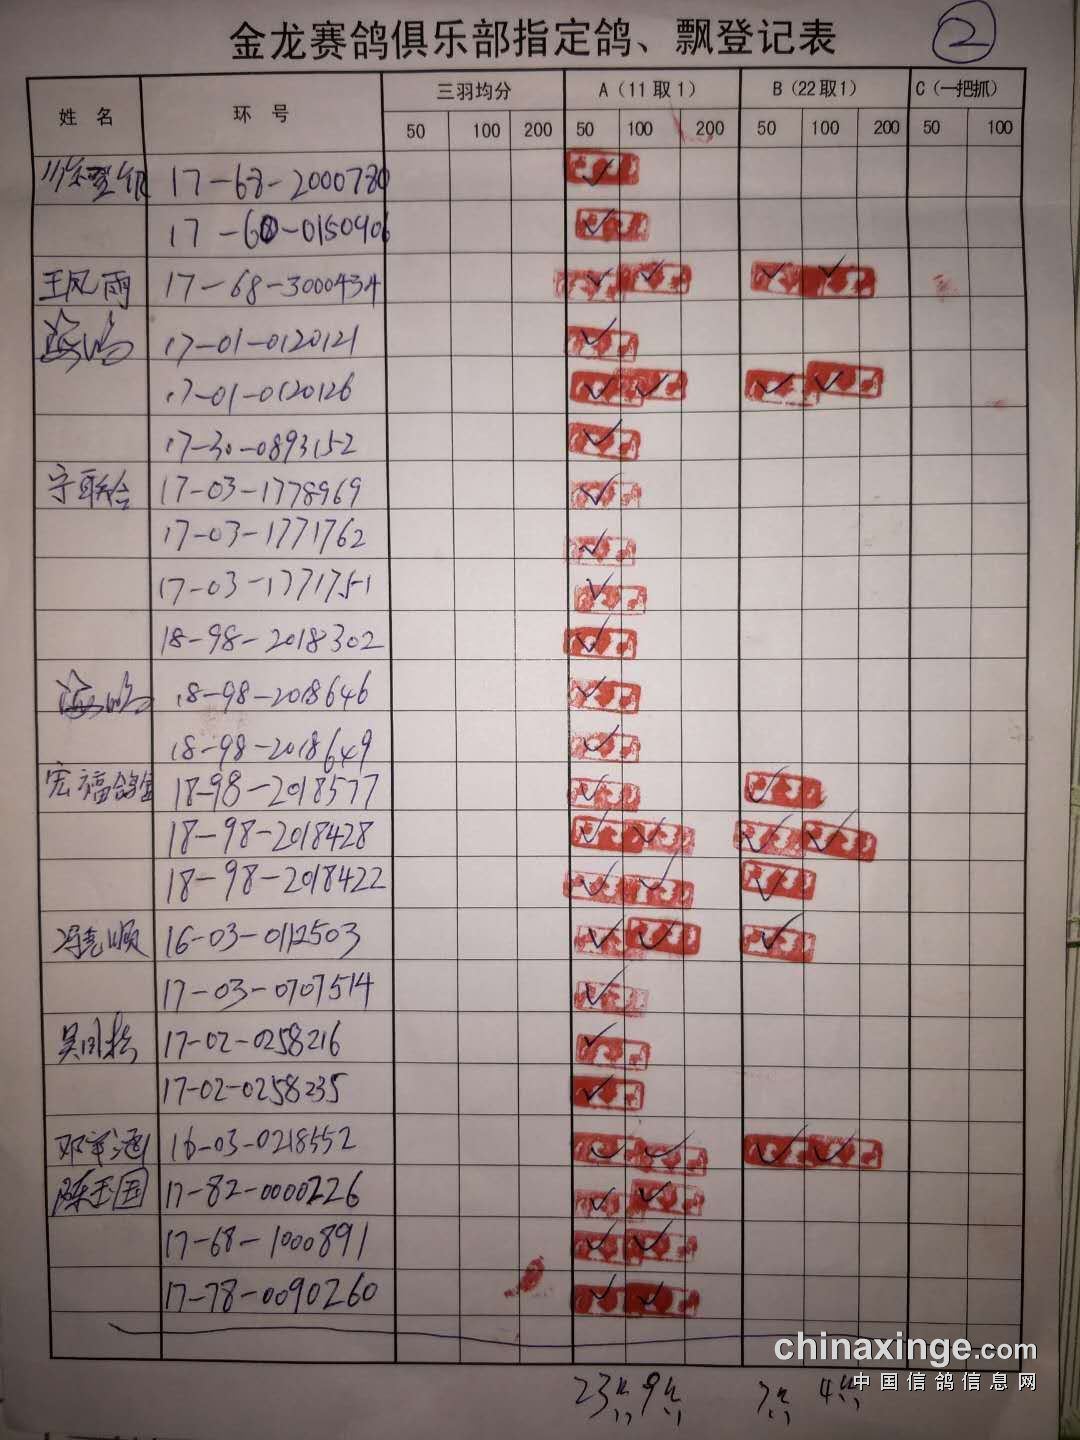 金龙赛鸽俱乐部指定鸽、飘登记表 2
姓名 环号 三羽均分 A（11取1） B（22取1） C（一把抓）
50 100 200 50 100 200 50 100 200 50 100
17-68-2000780
17-60-0150406
王凤雨 17-68-3000434
17-01-0120121
17-01-0120126
17-30-0893152
宁联合 17-03-1778969
17-03-1771762
17-03-1771751
18-98-2018302
18-98-2018646
18-98-2018649
宏福鸽舍 18-98-2018577
18-98-2018428
18-98-2018422
16-03-0112503
17-03-0707514
17-02-0258216
17-02-0258235
16-03-0218552
陈玉国 17-82-0000226
17-68-1000891
17-78-0090260
23 9 7 4
chinaxinge.com
中国信鸽信息网